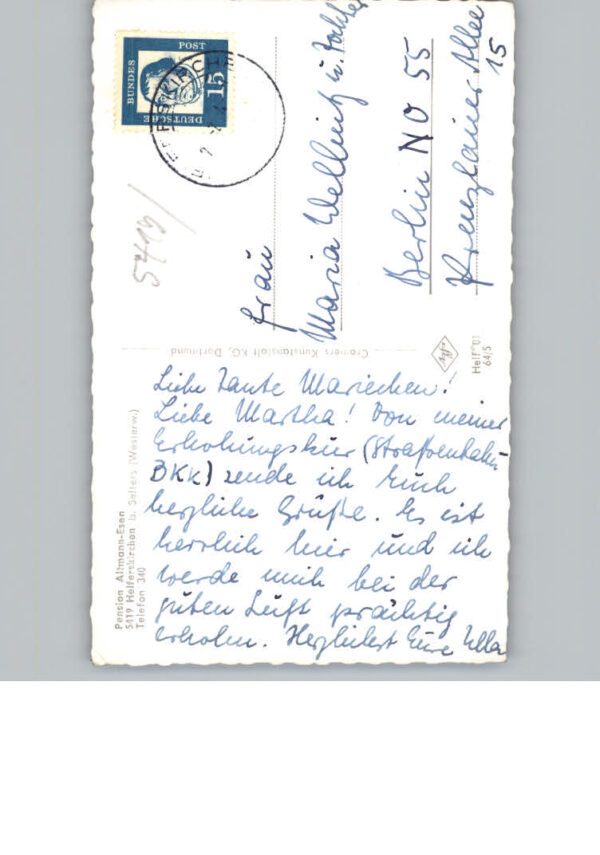 Pension Altmann-Esen
5419 Helferskirchen b. Selters (Westerw.)
Telefon 340
Liebe Tante Mariechen!
Liebe Martha! Von meiner
Erholungskur (Straßenbahn
BKK) sende ich Euch
herzliche Grüße. Es ist
herrlich hier und ich
werde mich bei der
guten Luft prächtig
erholen. Herzlichst Eure Ella
Cramers Kunstanstalt KG, Dortmund
Helf 01
64/5
5419
DEUTSCHE
BUNDES
POST
15
Frau
Maria Wellnitz u. Tochter
Berlin NO 55
Prenzlauer Allee
15